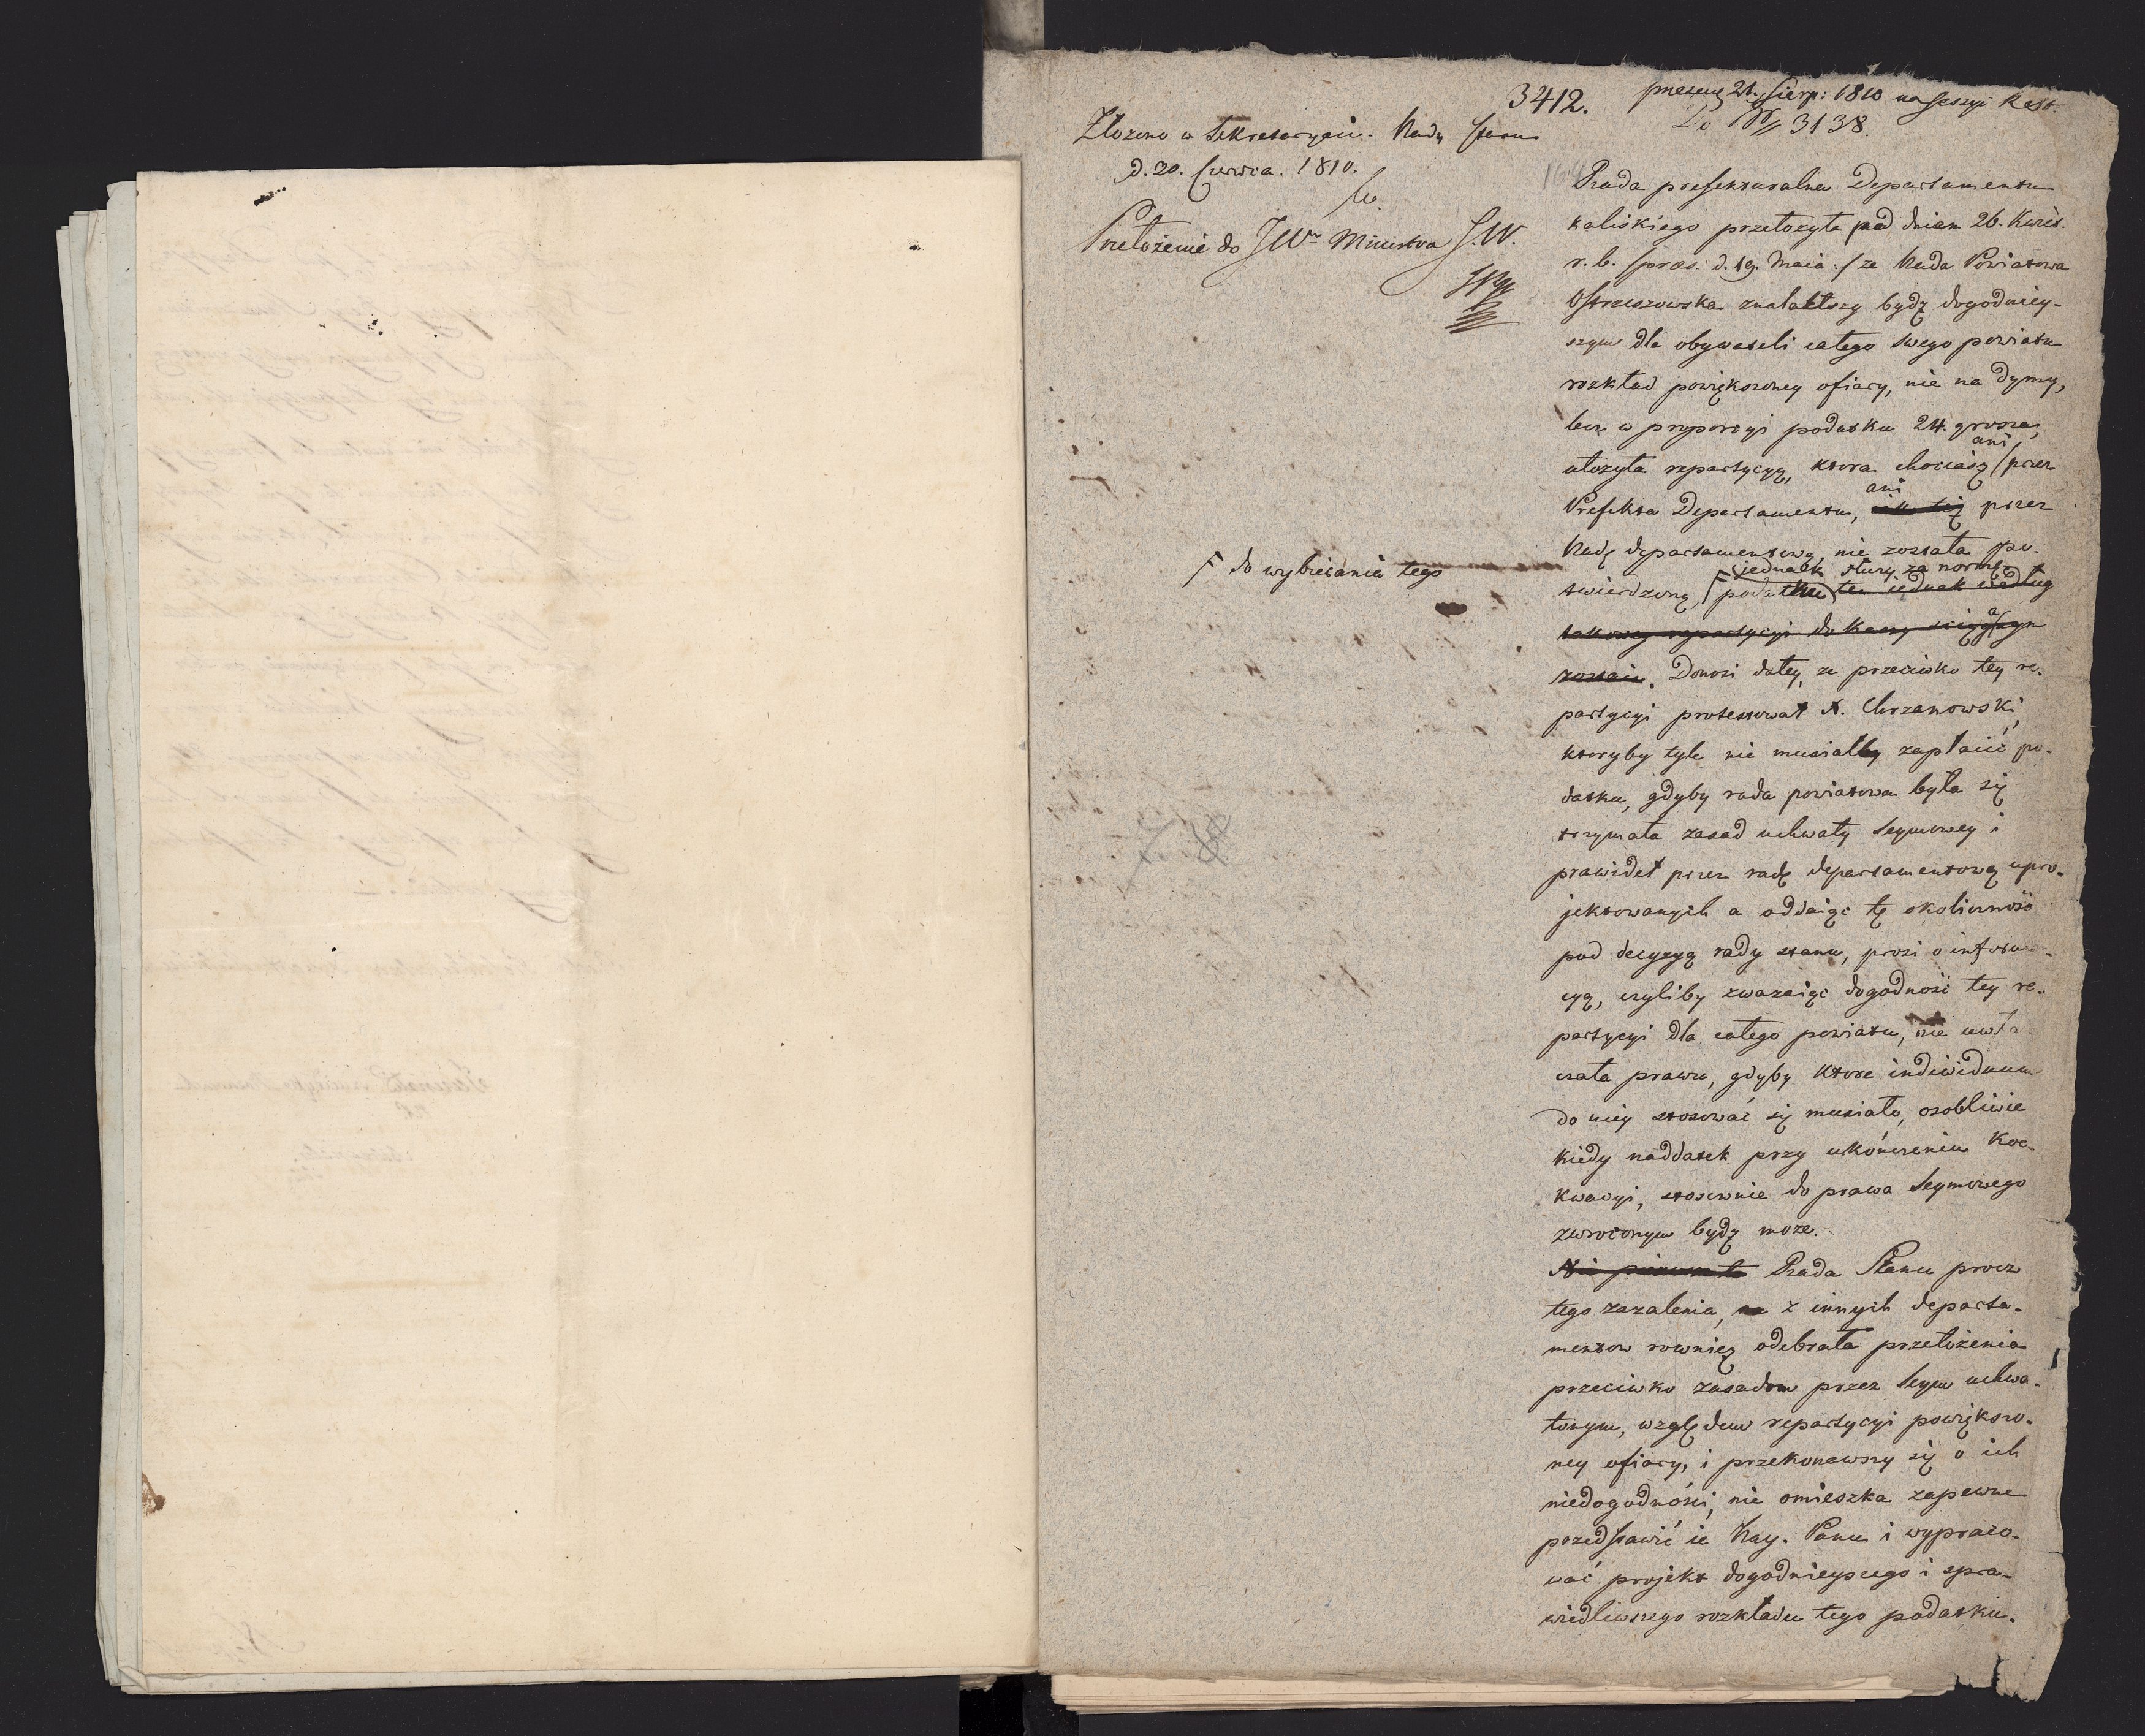 3412.
21. Sierp: 1810 na sessyi
Do N 3138.
Złożono w Sekretaryacie Rady Stanu
d. 20. Czerwca. 1810.
Przełożenie do JWo Ministra S. W.
Rada prefekturalna Departamentu
kaliskiego przełożyła pod dniem 26. Kwiet.
r. b. /præs. d. 19. Maia:/ że Rada Powiatowa
Ostrzeszowska znalazłszy bydź dogodniey-
szym dla obywateli całego swego powiatu
rozkład powiększoney ofiary, nie na dymy,
lecz w proporcyi podatku 24. grosza,
ułożyła repartycyą, ktora chociaż ani przez
Prefekta Departamentu, ani przez
Radę departamentową, nie została po-
twierdzoną, jednak służy za normę
F do wybierania tego
podatku ten iednak według
takowey repartycyi do Kassy ściągagyn
zostaie. Donosi daley, że przeciwko tey re-
partycyi protestował N. Chrzanowski,
ktoryby tyle nie musiałby zapłacić po-
datku, gdyby rada powiatowa była się
trzymała zasad uchwały Seymowey i
prawideł przez radę departamentową upro-
jektowanych a oddaiąc tę okoliczność
pod decyzyą rady stanu, prosi o informa-
cyą, czyliby zważaiąc dogodność tey re-
partycyi dla całego powiatu, nie uwła-
czała prawu, gdyby ktore indiwiduum
do niey stosować się musiało, osobliwie
kiedy naddatek przy ukończeniu Koe-
kwacyi, stosownie do prawa Seymowego
zwroconym bydź może.
Rada Stanu procz
tego zażalenia, z innych departa-
mentow rownież odebrała przełożenia
przeciwko zasadom przez Seym uchwa-
lonym, względem repartycyi powiększo-
ney ofiary, i przekonawszy się o ich
niedogodności, nie omieszka zapewne
przedstawić ie Nay. Panu i wypraco-
wać projekt dogodnieyszego i spra-
wiedliwszego rozkładu tego podatku.